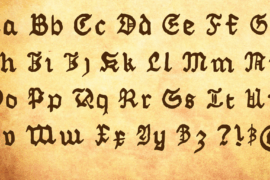 a Bb Cc Dd Ee Ff G
h Ii Jj Kk Ll Mm
o Pp Qq Rr Ss Tt U
v Ww Xx Yy Zz ?!$